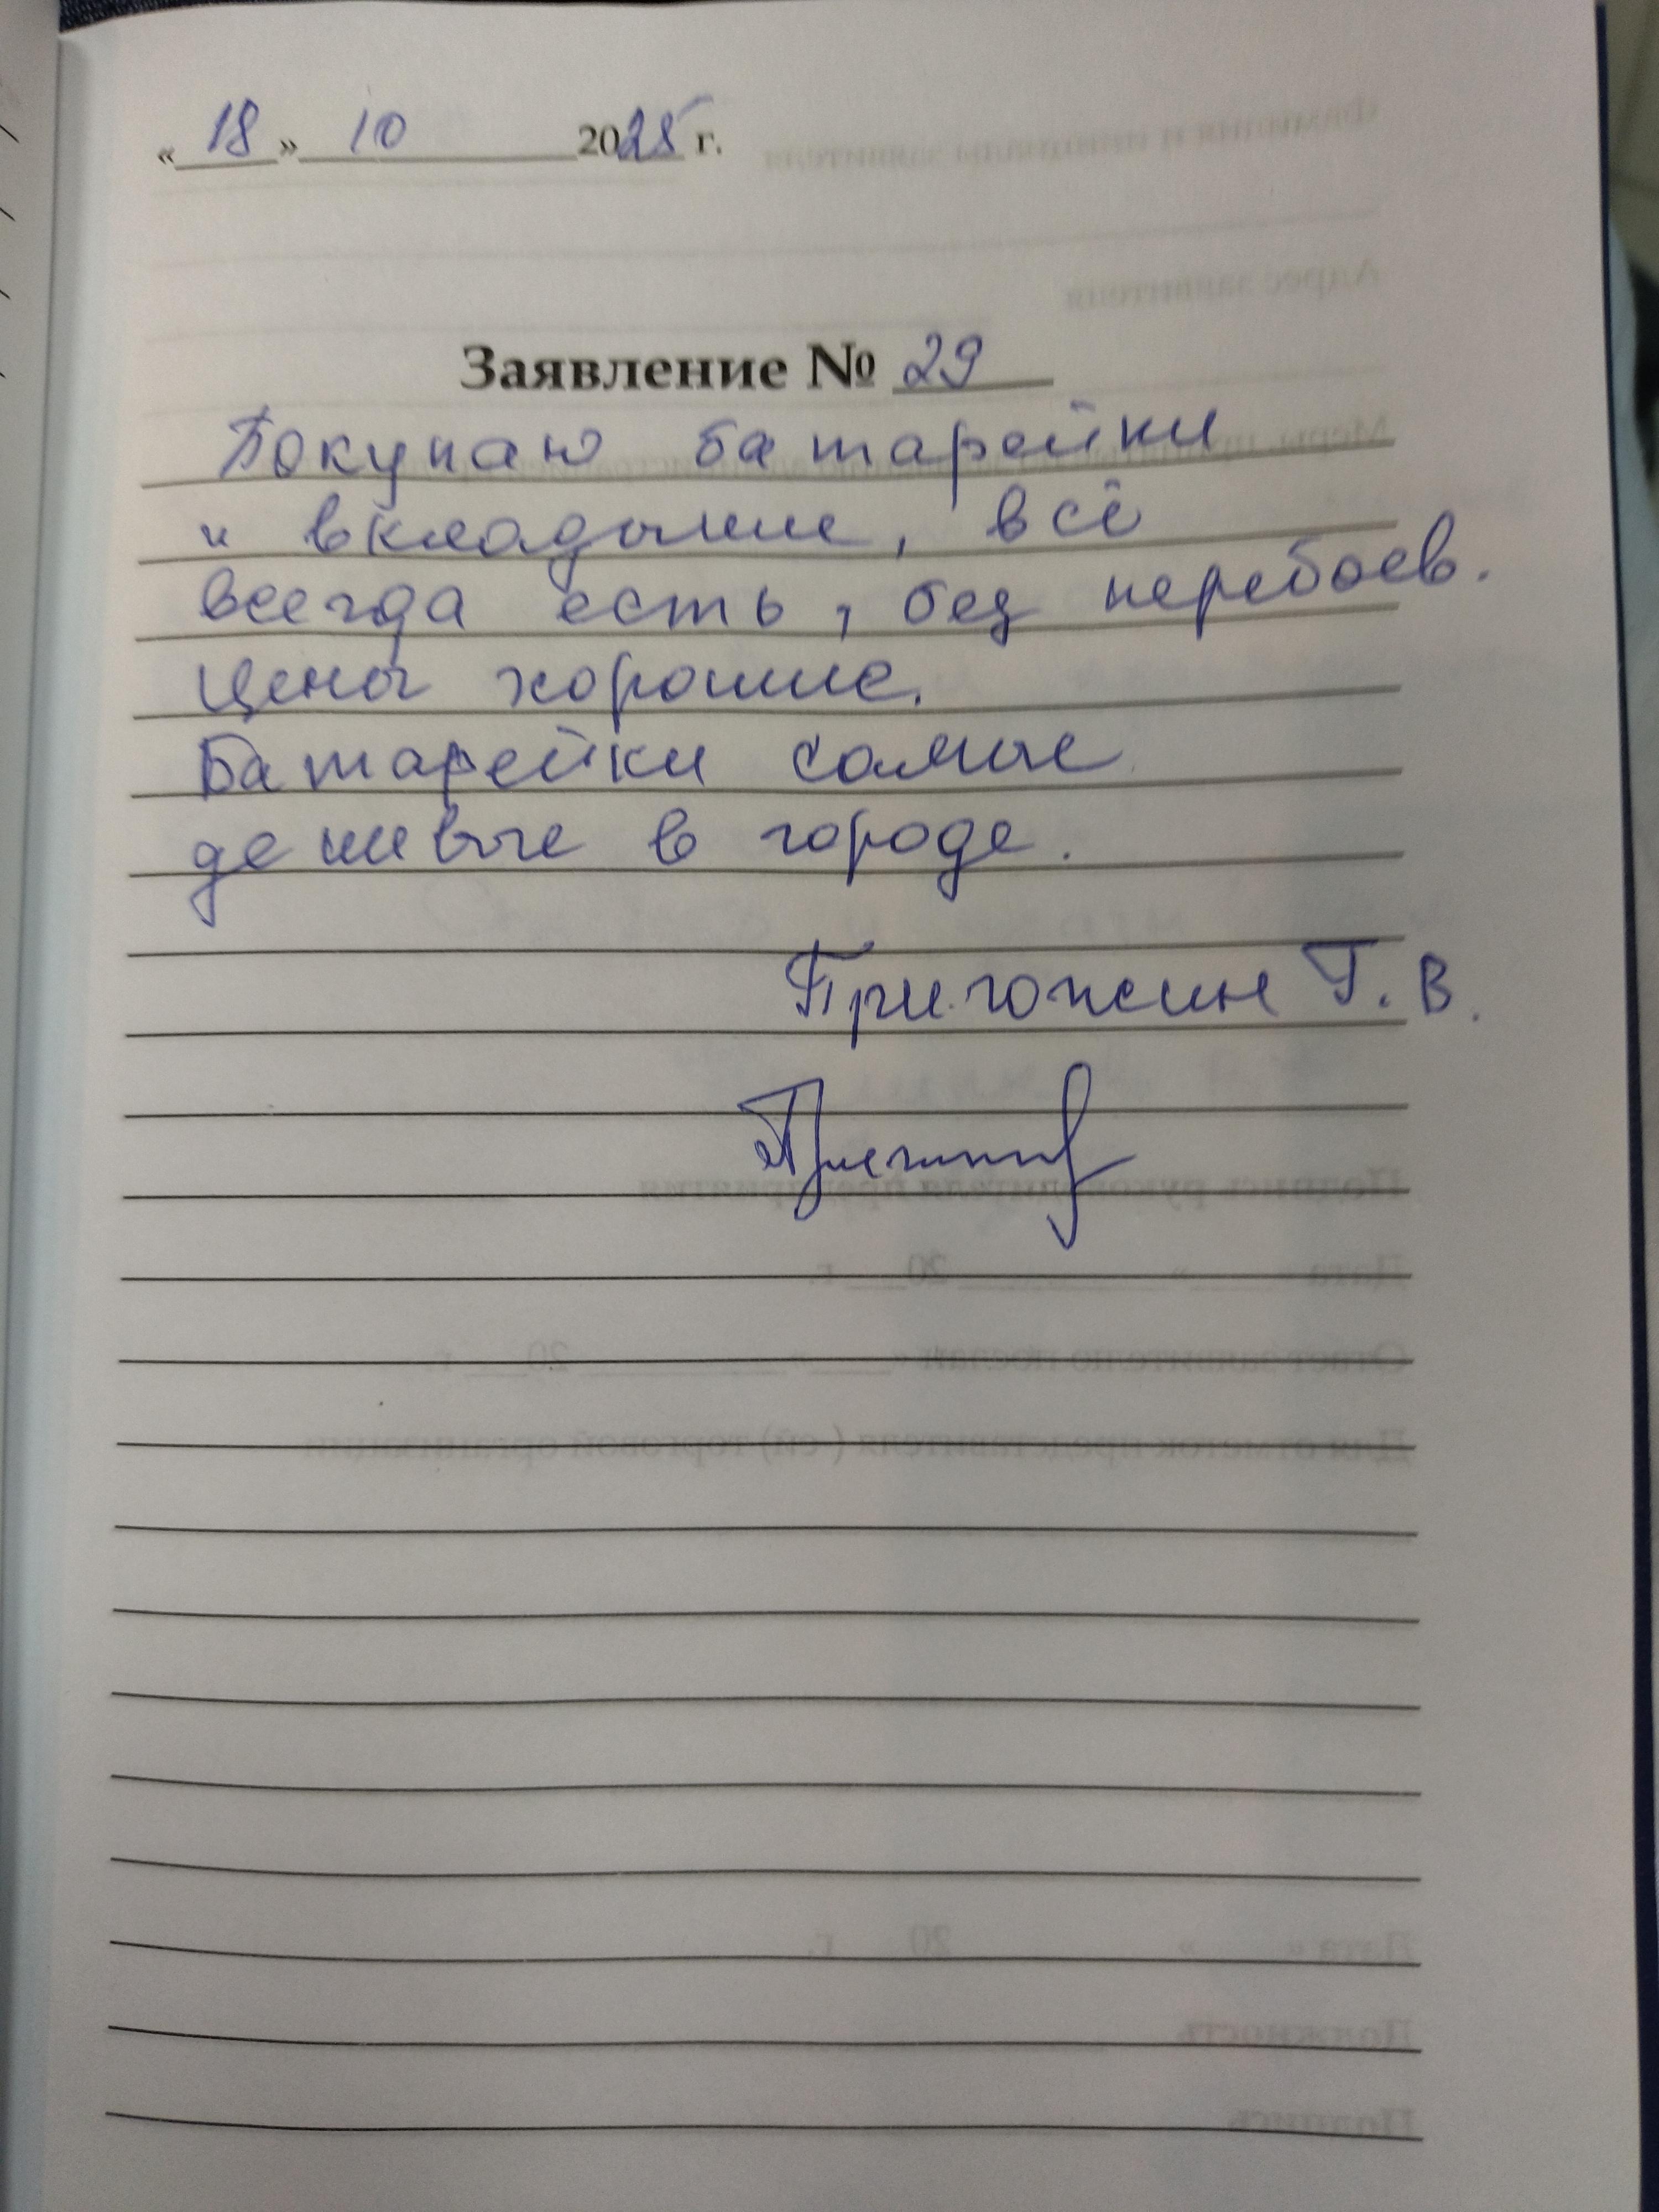 «18» 10 2025 г.
Заявление № 29
Покупаю батарейки
и вкладыши, всё
всегда есть, без перебоев.
Цены хорошие.
Батарейки самые
дешивые в городе.
Пригожин Г. В.